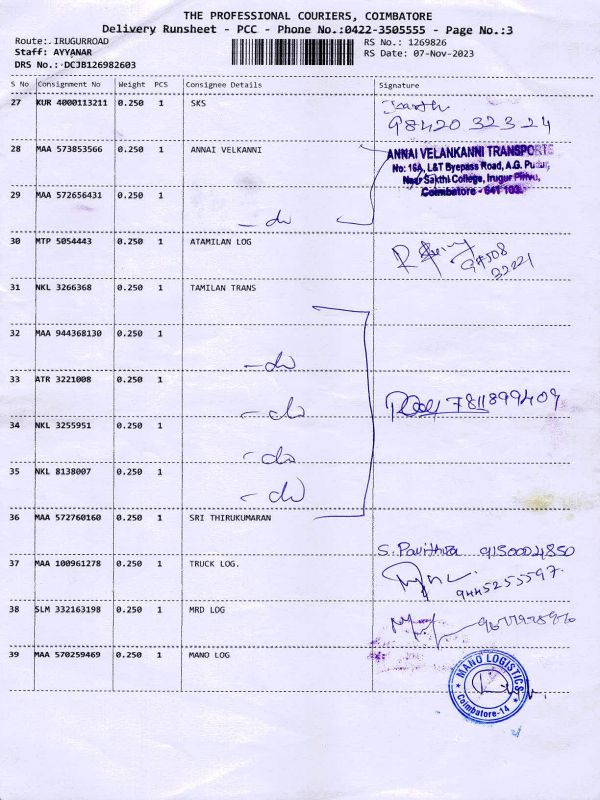 THE PROFESSIONAL COURIERS, COIMBATORE
Delivery Runsheet - PCC - Phone No.:0422-3505555 - Page No.:3
Route:.IRUGURROAD
Staff: AYYANAR
DRS No.:-DCJB126982603
RS No.: 1269826
RS Date: 07-Nov-2023
S No Consignment No Weight PCS Consignee Details Signature
27 KUR 4000113211 0.250 1 SKS
98420 32324
28 MAA 573853566 0.250 1 ANNAI VELKANNI
ANNAI VELANKANNI TRANSPORTS
No: 16A, L&T Byepass Road, A.G. Pudur,
Near Sakthi College, Irugur Pirivu,
Coimbatore - 641 103.
29 MAA 572656431 0.250 1
- do
30 MTP 5054443 0.250 1 ATAMILAN LOG
31 NKL 3266368 0.250 1 TAMILAN TRANS
32 MAA 944368130 0.250 1
- do
33 ATR 3221008 0.250 1
- do
7811899409
34 NKL 3255951 0.250 1
- do
35 NKL 8138007 0.250 1
- do
36 MAA 572760160 0.250 1 SRI THIRUKUMARAN
S. Pavithra 9150024850
37 MAA 100961278 0.250 1 TRUCK LOG.
9445253597.
38 SLM 332163198 0.250 1 MRD LOG
39 MAA 570259469 0.250 1 MANO LOG
MANO LOGISTICS
Coimbatore-14